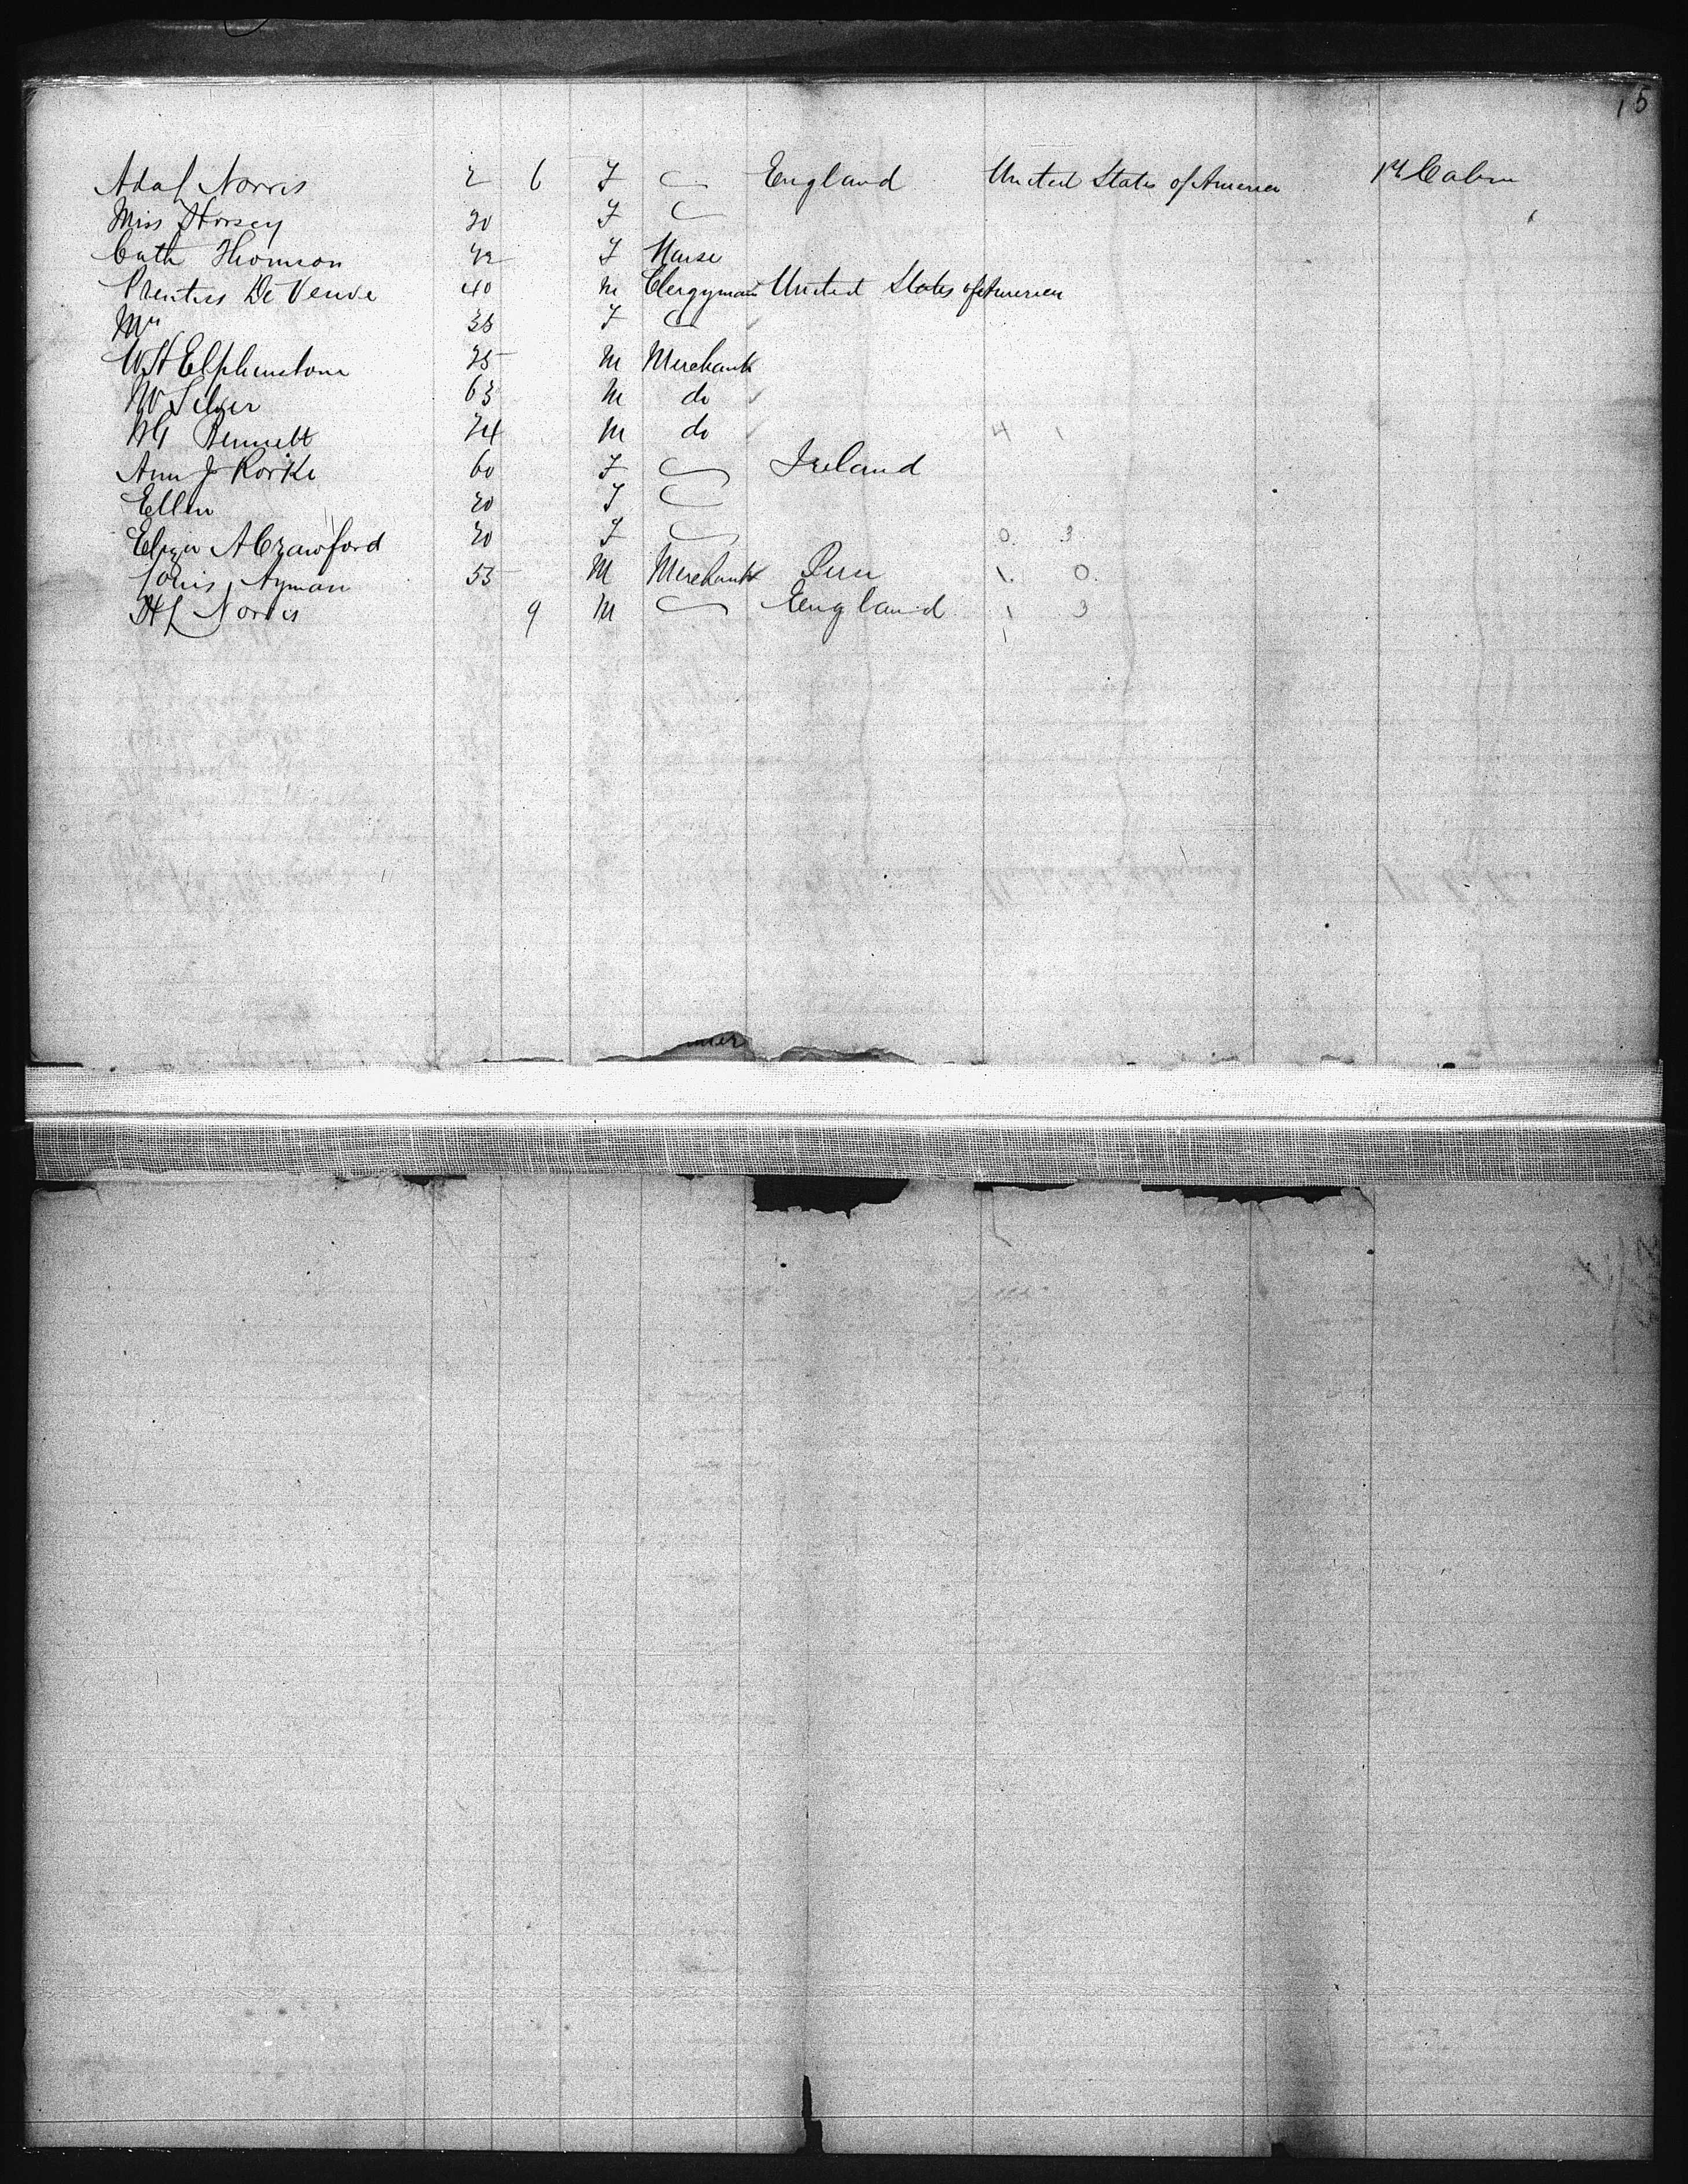 15
Ada L Norris 2 6 F England United States of America 1st Cabin
Miss Horsey 20 F
Cath Thomson 42 F Nurse
Prentiss De Veuve 40 M Clergyman United States of America
Mrs 38 F
W H Elphinstone 25 M Merchant
W Selger 63 M do
Bennett 24 M do 4 1
Ann J Rorke 60 F Ireland
Ellen 20 F
Eliza A Crawford 20 F 0. 3
Louis Ayman 55 M Merchant Peru 1. 0.
H L Norris 9 M England 1 3